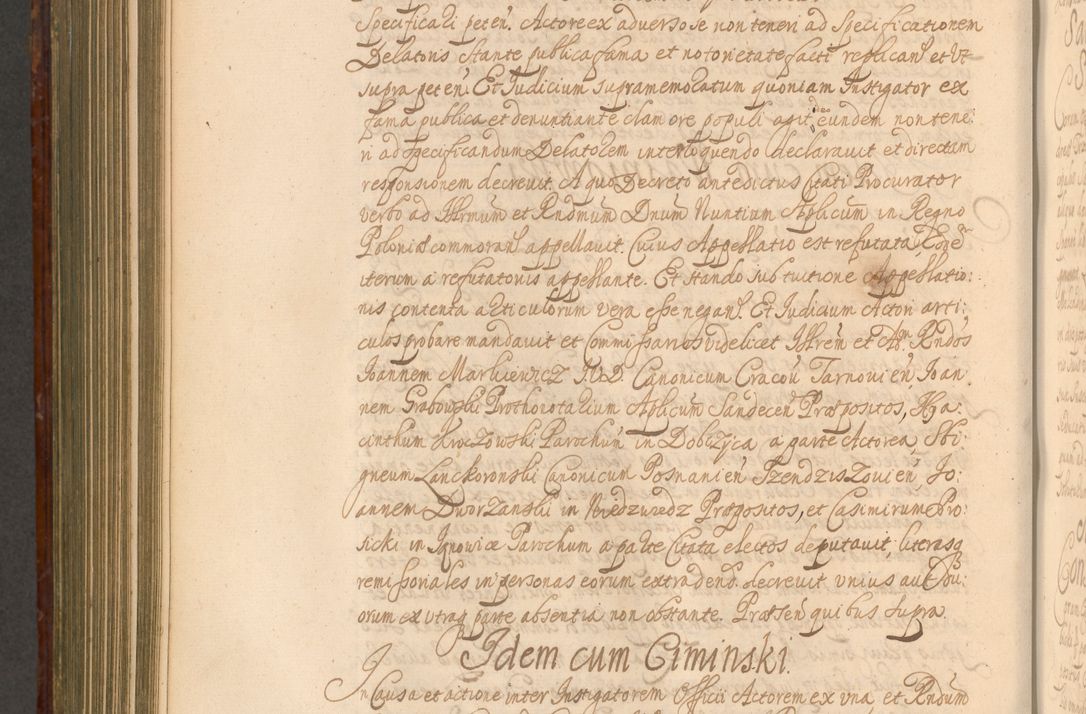 Specificari peteñ. Actore ex adverso se non teneri ad Specificationem
Delatoris stante publica fama et notorietate facti replican̄ et ut
supra peteñ. Et Judicium supramemoratum quoniam Instigator ex
fama publica et denuntiante clamore populi agit, eundem non tene:
ri ad specificandum Delatorem interloquendo declaravit et directam
responsionem decrevit. A quo Decreto antedictus Citati Procurator
verbo ad Illrmum et Rndmum Dnum Nuntium Aplicum in Regno
Poloniæ commoran̄ appellavit. Cuius Appellatio est refutata,
iterum a refutatoris appellante. Et stando sub tuitione Appellatio:
nis contenta articulorum vera esse negan̄. Et Judicium Actori arti:
culos probare mandavit et Commissarios videlicet Illrem et Adm Rndos
Joannem Markiewicz J.U.D. Canonicum Cracov Tarnovieñ, Joan
nem Grabowski Prothonotarium Aplicum Sandeceñ Præpositos, Hya:
cinthum Kroczowski Parochum in Dobczyca a parte Actorea, Sbi:
gneum Lanckoronski Canonicum Posnanieñ Tzendziszovieñ, Jo:
annem Dworzanski in Niedzwiedz Præpositos, et Casimirum Pro:
sicki in Jgnowice Parochum a parte Citata electos deputavit, literasq
remissoriales in personas eorum extradend̄ decrevit unius aut Du:
orum ex utraq parte absentia non obstante. Præsen̄ quibus supra
Idem cum Ciminski.
In Causa et actione inter Instigatorem Officii Actorem ex una, et Rndum